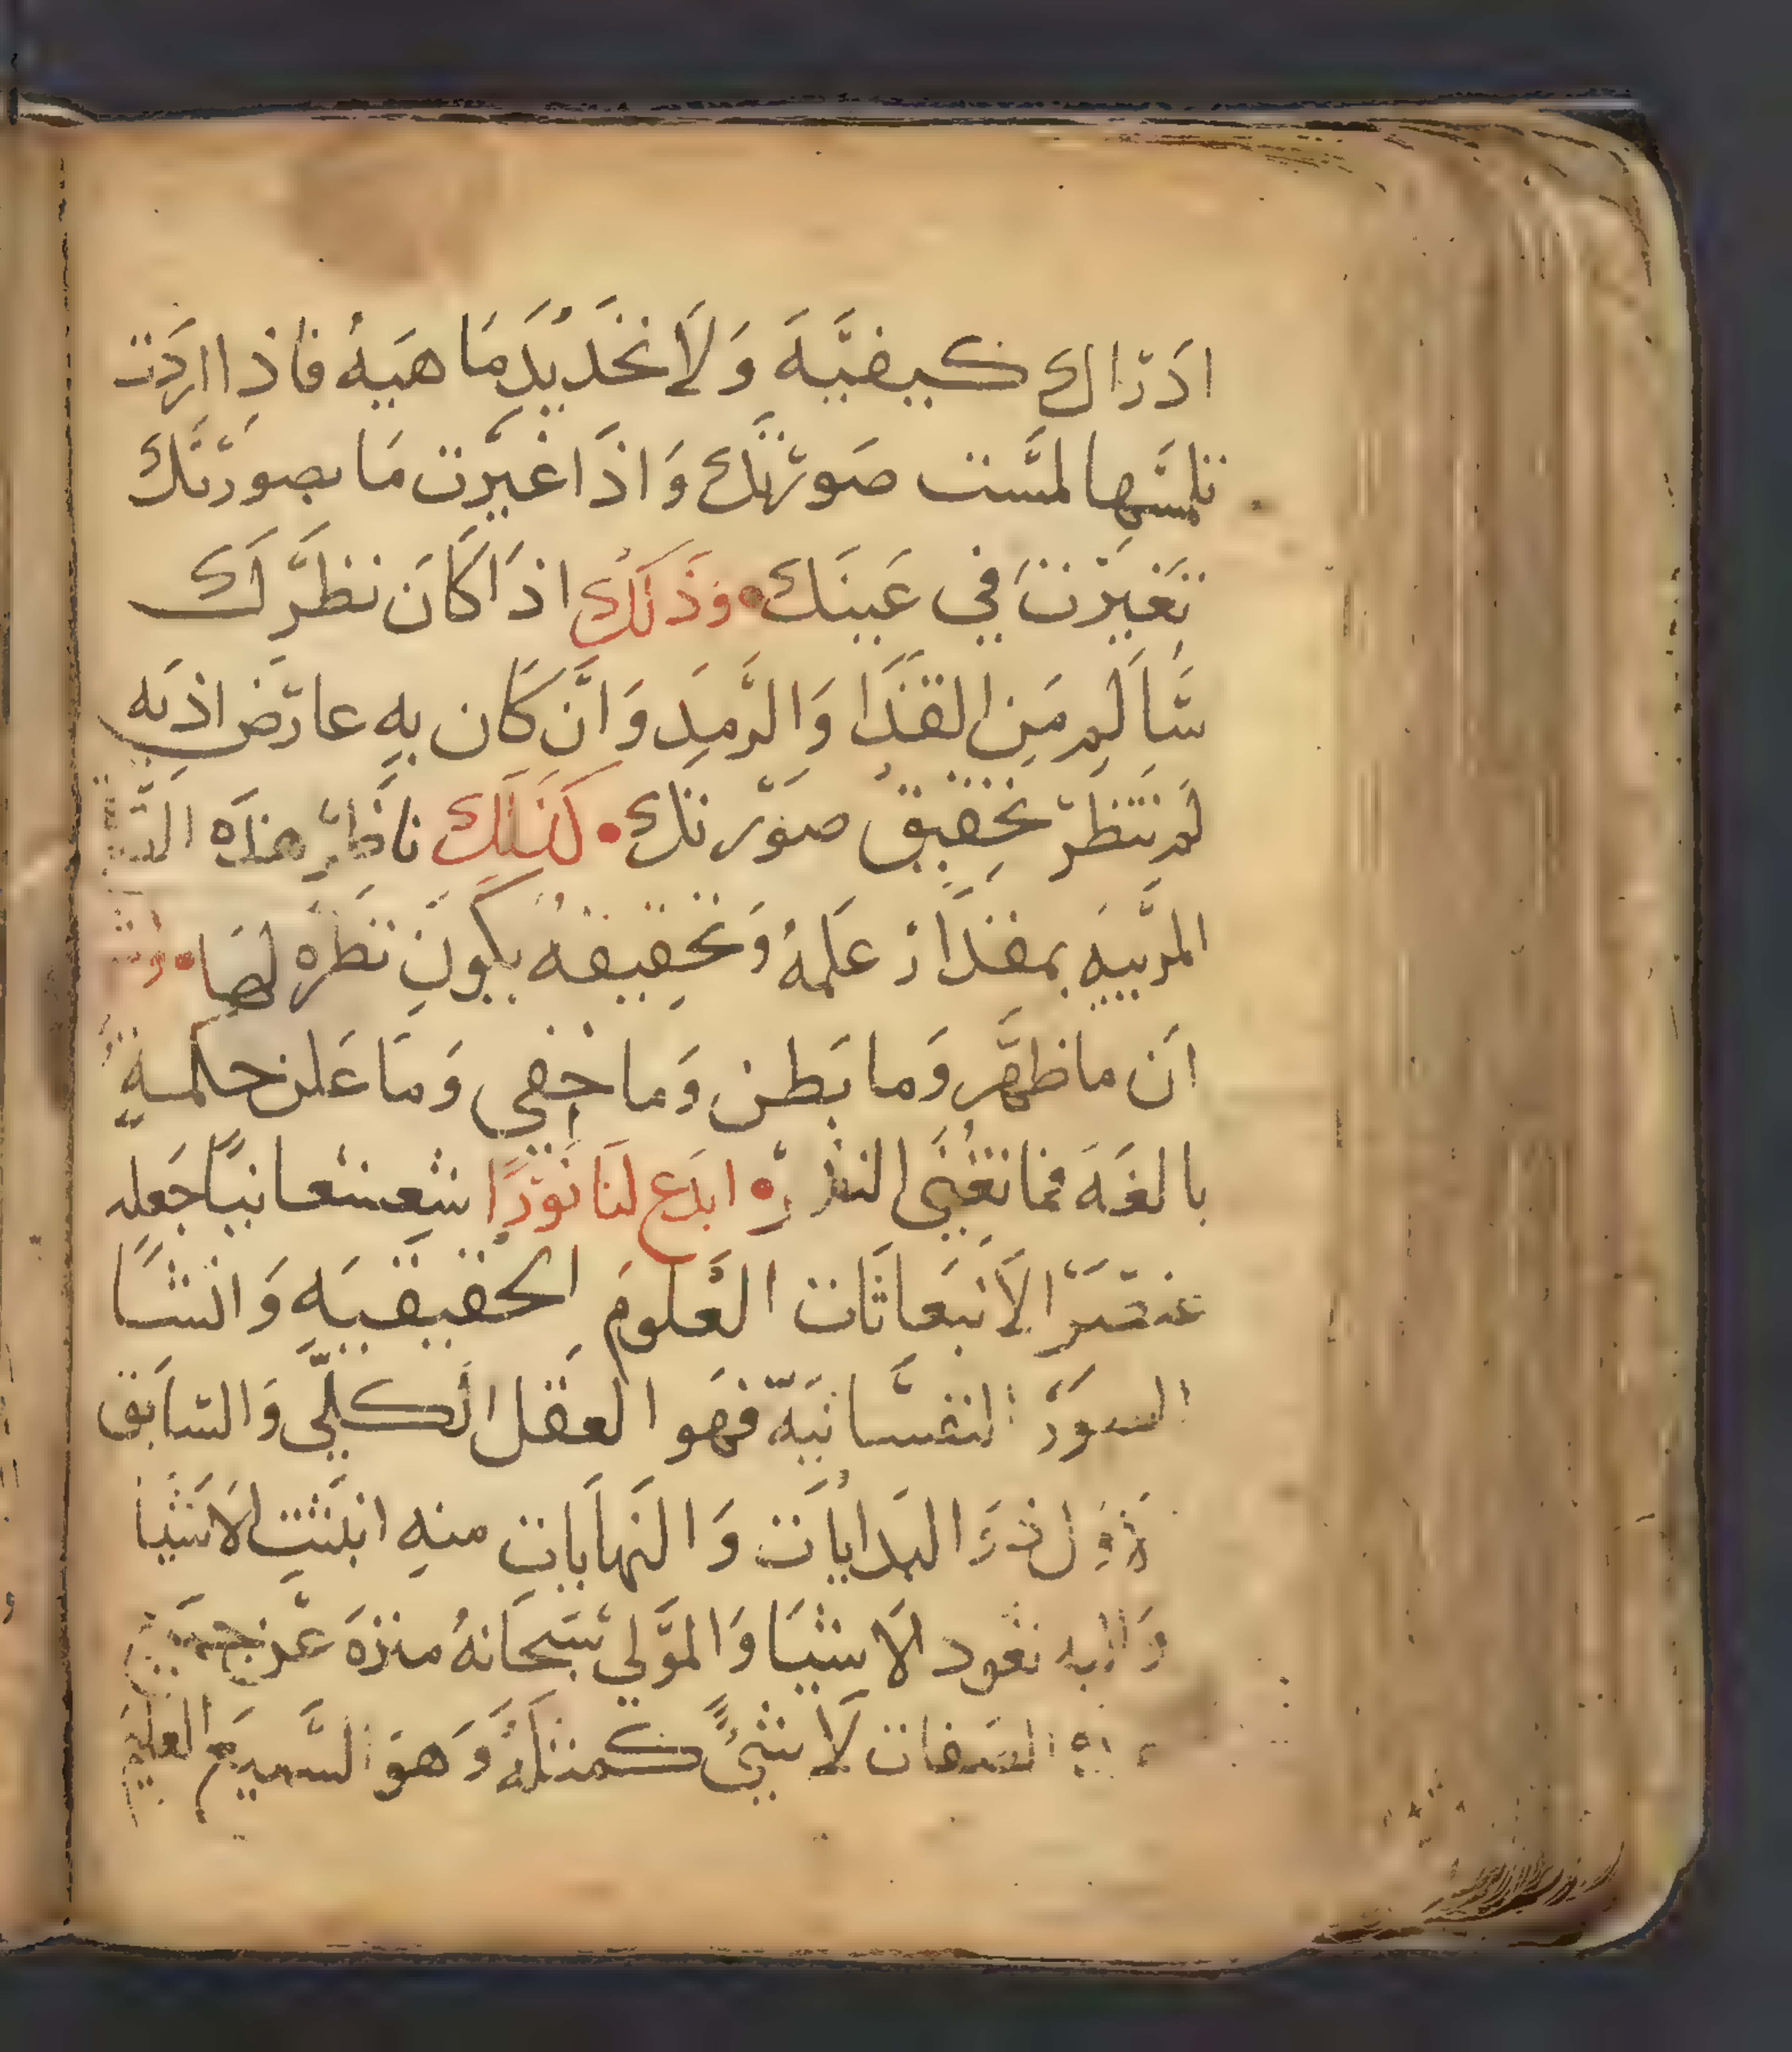 ادراك كيفيّة وَلَا تحَديدِ مَاهيةُ فاذِا اردَت
تلمسَّها لمسَّت صَورتكَ وَاذَا غيرّت مَا بصورتكَ
تغيرّت في عَينَك • وَذَلكَ اذَا كَانَ نظرَك
سَّالم مَن القذَا وَالرَّمدِ وَانَّ كَان بهِ عارض اذيَه
لم تنتظرّ تحقيق صوَرتك • كذلك ناظر هذه
المرييهِ بمقدار علمهُ وَتحقيقهُ يكونَ نظره لهَا •
ان ما ظهرَّ وَما بَطن وَما خفي وَمَا عَلن حكمةٍ
بالغَهَ فما تغني النذره • ابدَع لنَا نوَرًا شعشعانيًا جَعله
عنصَرَ الاَنبعَاثَات العُلومَ الحقيقيَهِ وَانشَا
السورَ النفسَّانيّه فهَو العقَل الكلّي وَالسّابَق
البدايَات وَالنهَايَات منهِ ابدَت الاشيَا
وَاليه تعُود الاَشيَا وَالموَلي سَبحَانهُ منزهَ عَن
الصَفات لَا شيٌ كمثلهُ وَهوَ السَّميَع العليم